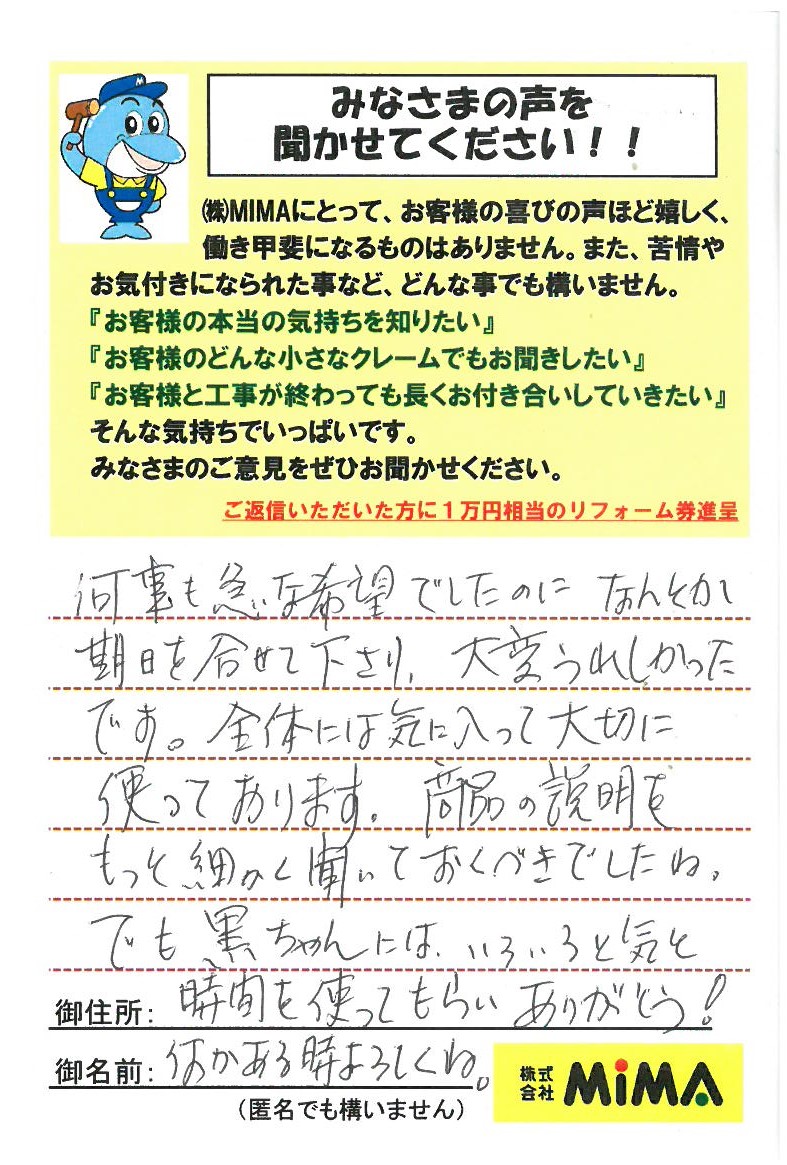 M
みなさまの声を
聞かせてください！！
㈱MIMAにとって、お客様の喜びの声ほど嬉しく、
働き甲斐になるものはありません。また、苦情や
お気付きになられた事など、どんな事でも構いません。
『お客様の本当の気持ちを知りたい』
『お客様のどんな小さなクレームでもお聞きしたい』
『お客様と工事が終わっても長くお付き合いしていきたい』
そんな気持ちでいっぱいです。
みなさまのご意見をぜひお聞かせください。
ご返信いただいた方に１万円相当のリフォーム券進呈
何事も急な希望でしたのに なんとか
期日を合せて下さり、大変うれしかった
です。全体には気に入って大切に
使っております。商品の説明を
もっと細かく聞いておくべきでしたね。
でも黒ちゃんには、いろいろと気と
御住所： 時間を使ってもらい ありがとう！
御名前： 何かある時よろしくね。
（匿名でも構いません）
株式会社 MiMA